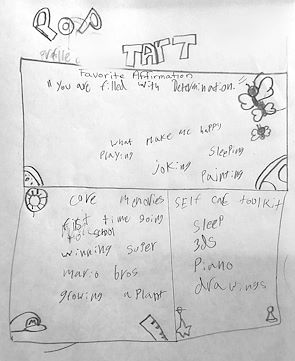 POP
profile
TART
Favorite Affirmation
"You are filled with Determination."
What make me happy
playing
Sleeping
joking
Painting
core memories
first time going
to school
winning super
mario bros
growing a plant
Self care toolkit
Sleep
3ds
Piano
drawings
M